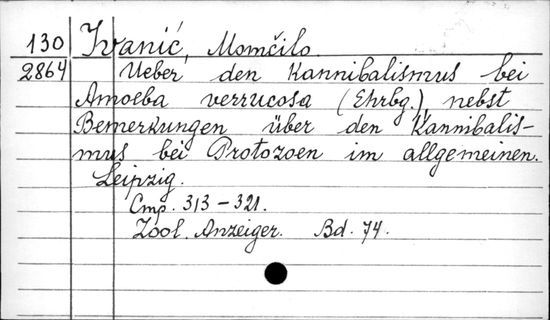 130 Ivanić, Momčilo
2864 Ueber den Kannibalismus bei
Amoeba verrucosa (Ehrbg.) nebst
Bemerkungen über den Kannibalis-
mus bei Protozoen im allgemeinen.
Leipzig.
Стр. 313-321.
Zool. Anzeiger. Bd. 74.